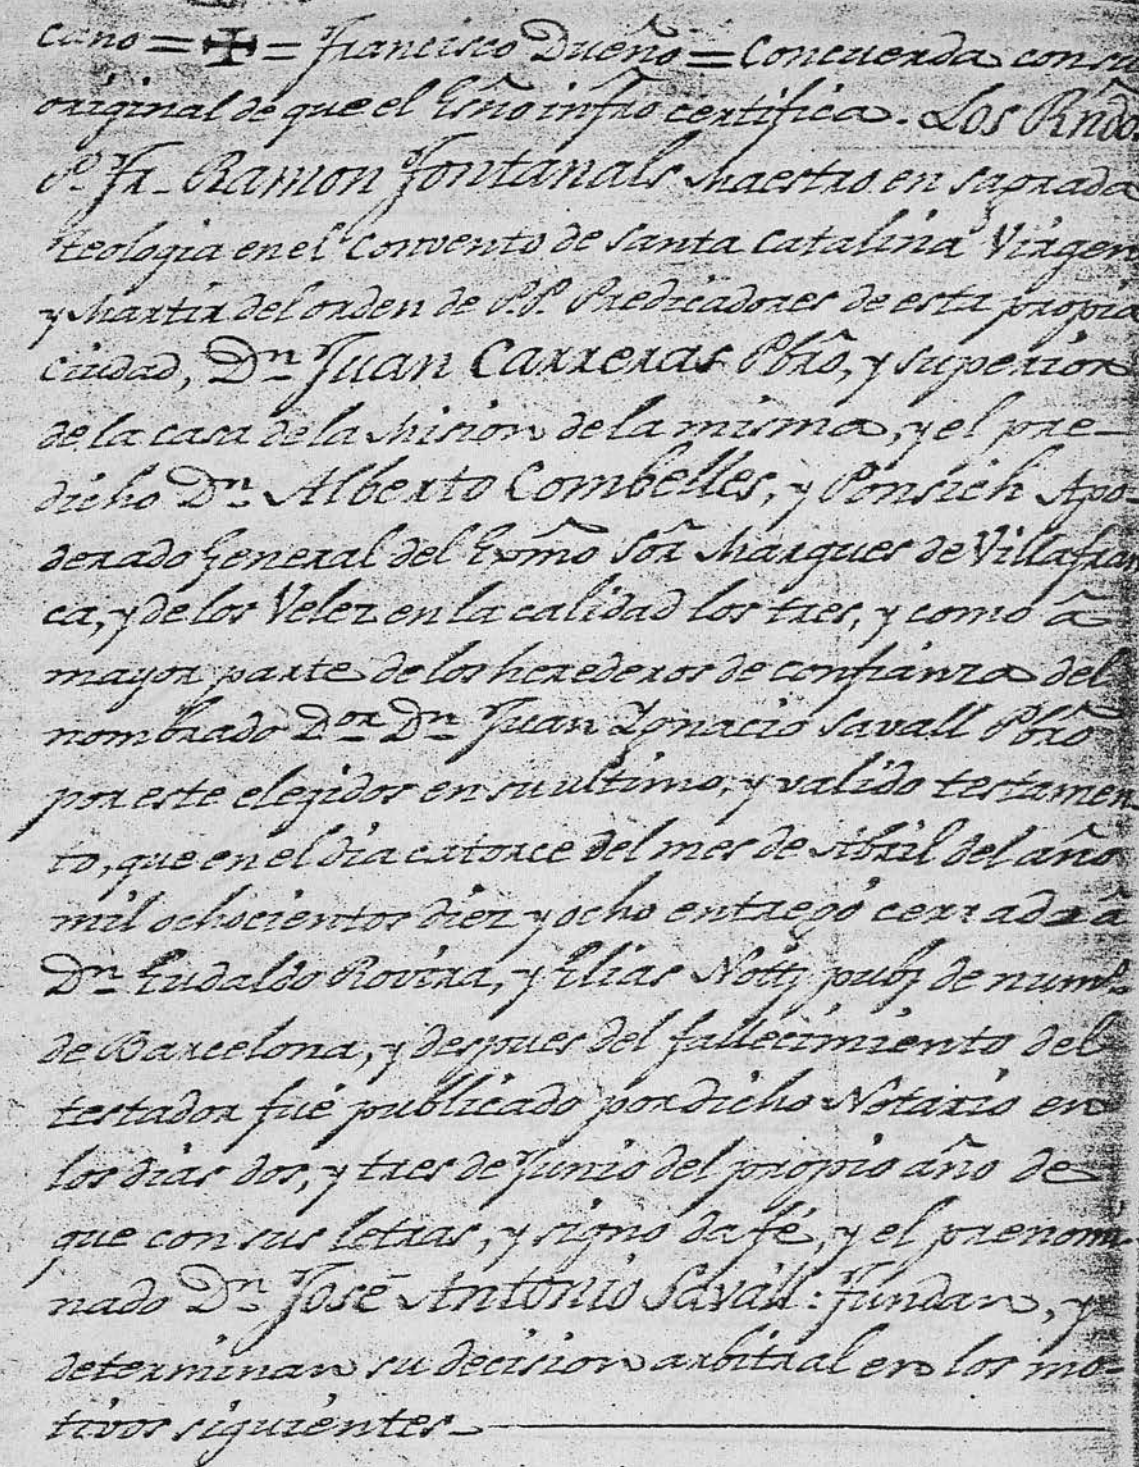 cano = ✠ = Francisco Dueño = Concuerda con su
original de que el Esño infro certifica. Los Rñdo
P. Fr. Ramon Fontanals Maestro en sagrada
teologia en el Convento de santa Catalina Virgen
y Martir del orden de P.P. Predicadores de esta propia
ciudad, Dn Juan Carreras Pbrõ, y superior
de la casa de la Mision de la misma, y el pre-
dicho Dn Alberto Combelles, y Ponsich Apo-
derado General del Exmõ Sõr Marques de Villafran
ca, y de los Velez en la calidad los tres, y como â
mayor parte de los herederos de confianza del
nombrado Dor Dn Juan Ygnacio Savall Pbrõ
por este elegidos en su ultimo, y valido testamen-
to, que en el dia catorce del mes de Abril del año
mil ochocientos diez y ocho entregó cerrado â
Dn Eudaldo Rovira, y Elias Nott, pub, de numo
de Barcelona, y despues del fallecimiento del
testador fué publicado por dicho Notario en
los dias dos, y tres de Junio del propio año de
que con sus letras, y signo da fé, y el prenomi-
nado Dn José Antonio Savall: fundan, y
determinan su decision arbitral en los mo-
tivos siguientes